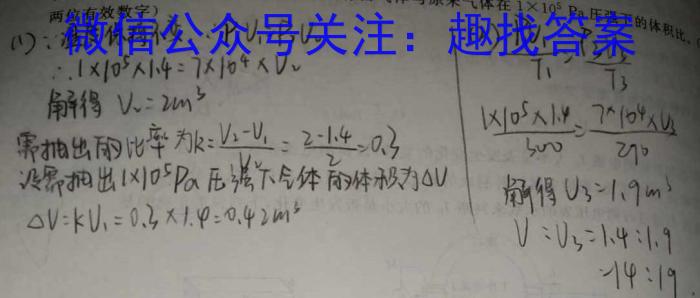 两位有效数字）
气体与原来气体在1×10⁵ Pa压强下的体积比.
微信公众号关注：趣找答案
(1)∵
∴1×10⁵×1.4=7×10⁴×V₂
解得 V₂=2m³
需抽出的比率为k=(V₂-V₁)/V₂=(2-1.4)/2=0.3
设需抽出1×10⁵Pa压强下气体的体积为ΔV
ΔV=kV₁=0.3×1.4=0.42m³
T₁ T₃
(1×10⁵×1.4)/300=(7×10⁴×V₃)/290
解得V₃=1.9m³
V:V₃=1.4:1.9
=14:19